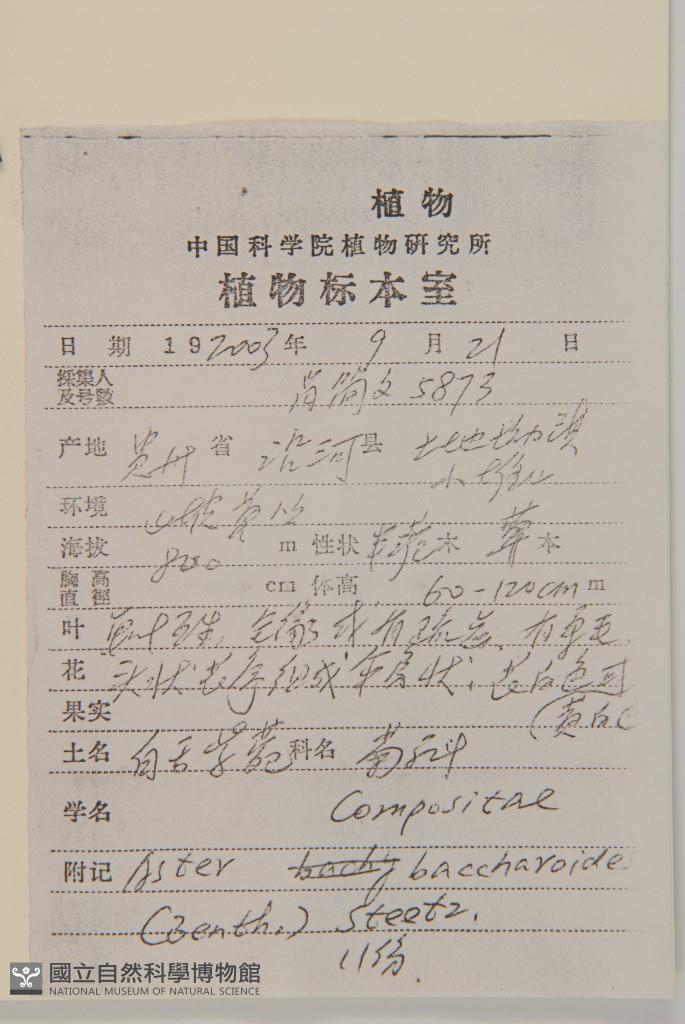 植物
中国科学院植物研究所
植物标本室
日期 19 2003年 9 月 21 日
採集人及号数 肖简文 5873
产地 贵州 省 沿河 县
环境 山坡草丛
海拔 800 m 性状 木 草 本
胸高直徑 cm 体高 60-120cm m
叶 单叶互生,全缘或有疏齿,有单毛
花 头状花序组成伞房状,花白色
果实 (黄白
土名 白舌紫菀 科名 菊科
学名 Compositae
附记 Aster baccharoides
(Benth.) Steetz.
11份.
國立自然科學博物館
NATIONAL MUSEUM OF NATURAL SCIENCE